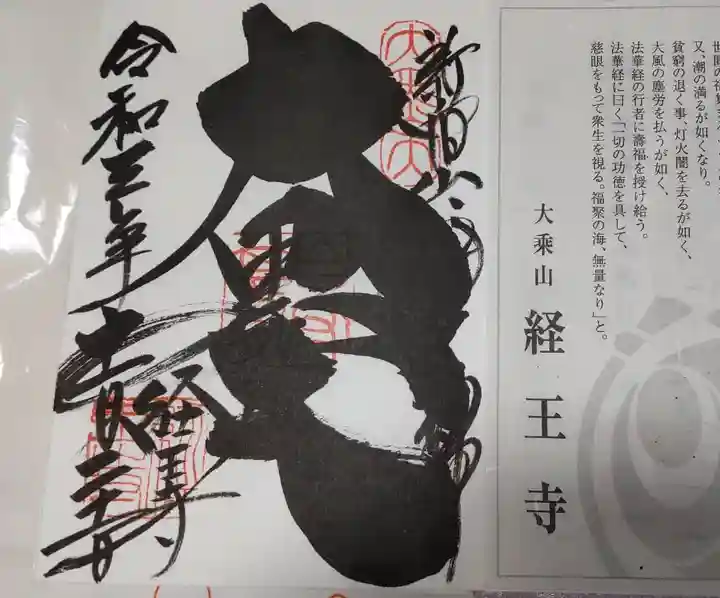 新宿山ノ手
大黒天
令和三年十一月二十六日
経王寺
又、潮の満るが如くなり。
貧窮の退く事、灯火闇を去るが如く、
大風の塵労を払うが如く、
法華経の行者に壽福を授け給う。
法華経に曰く「一切の功徳を具して、
慈眼をもって衆生を視る。福聚の海、無量なり」と。
大乗山 経王寺